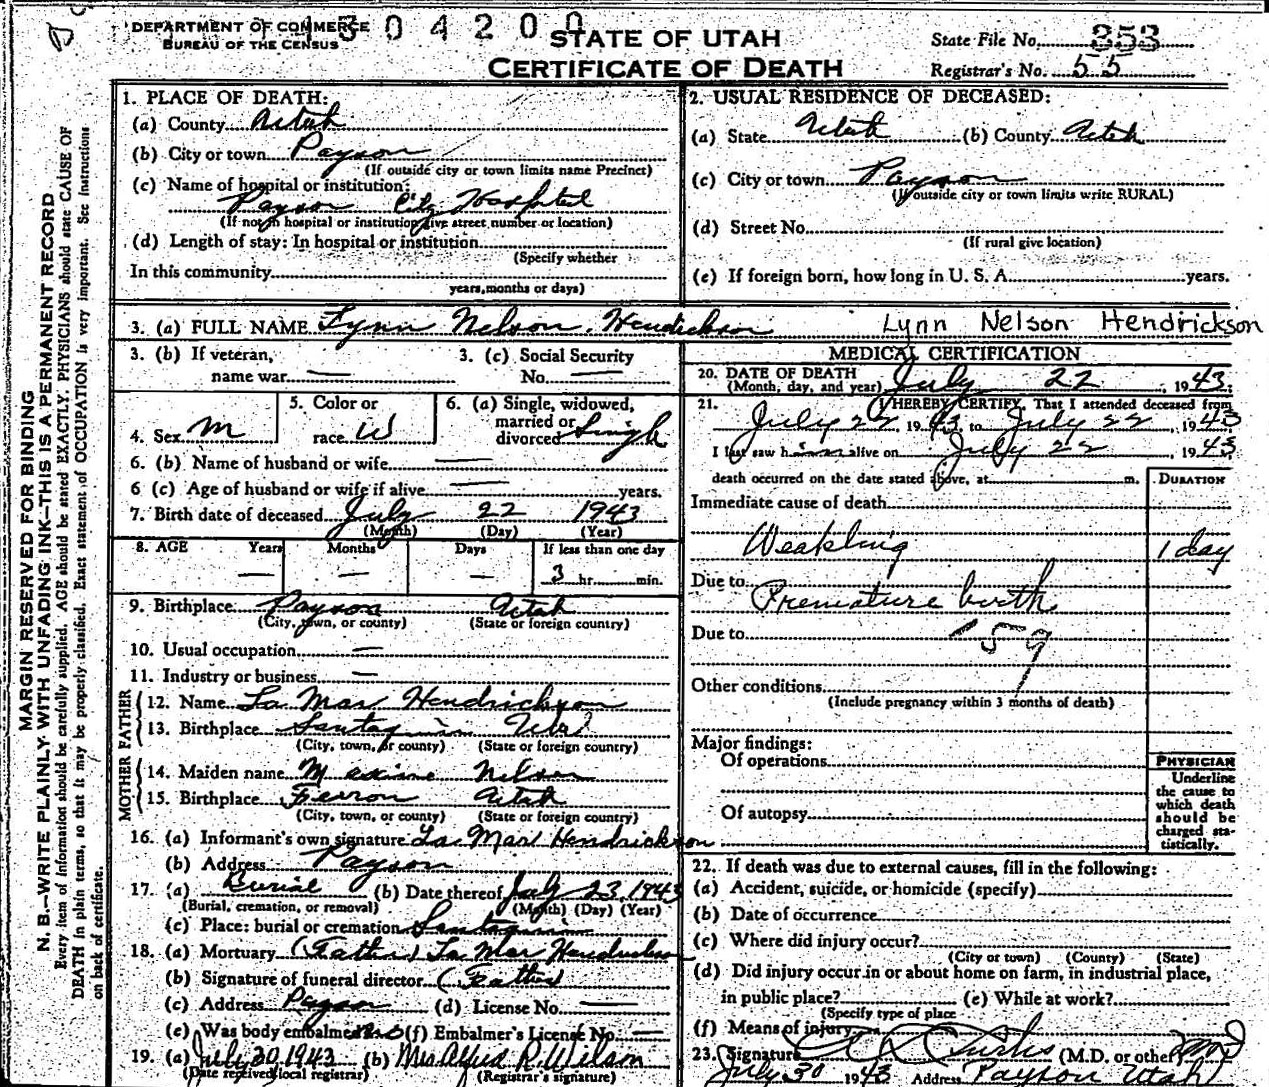 DEPARTMENT OF COMMERCE
BUREAU OF THE CENSUS
304200
STATE OF UTAH
CERTIFICATE OF DEATH
State File No. 353
Registrar's No. 55
MARGIN RESERVED FOR BINDING
N. B.—WRITE PLAINLY WITH UNFADING INK—THIS IS A PERMANENT RECORD
Every item of information should be carefully supplied. AGE should be stated EXACTLY. PHYSICIANS should state CAUSE OF
DEATH in plain terms, so that it may be properly classified. Exact statement of OCCUPATION is very important. See instructions
on back of certificate.
1. PLACE OF DEATH:
(a) County Utah
(b) City or town Payson
(If outside city or town limits name Precinct)
(c) Name of hospital or institution:
Payson City Hospital
(If not in hospital or institution give street number or location)
(d) Length of stay: In hospital or institution
(Specify whether
In this community
years, months or days)
2. USUAL RESIDENCE OF DECEASED:
(a) State Utah (b) County Utah
(c) City or town Payson
(If outside city or town limits write RURAL)
(d) Street No.
(If rural give location)
(e) If foreign born, how long in U. S. A. years.
3. (a) FULL NAME Lynn Nelson Hendrickson Lynn Nelson Hendrickson
3. (b) If veteran,
name war —
3. (c) Social Security
No. —
4. Sex M
5. Color or
race W
6. (a) Single, widowed,
married or
divorced Single
6. (b) Name of husband or wife —
6 (c) Age of husband or wife if alive — years.
7. Birth date of deceased July 22 1943
(Month) (Day) (Year)
8. AGE Years Months Days If less than one day
— — — 3 hr. min.
9. Birthplace Payson Utah
(City, town, or county) (State or foreign country)
10. Usual occupation —
11. Industry or business —
FATHER
12. Name La Mar Hendrickson
13. Birthplace Santaquin Utah
(City, town, or county) (State or foreign country)
MOTHER
14. Maiden name Maxine Nelson
15. Birthplace Ferron Utah
(City, town, or county) (State or foreign country)
16. (a) Informant's own signature La Mar Hendrickson
(b) Address Payson
17. (a) Burial (b) Date thereof July 23, 1943
(Burial, cremation, or removal) (Month) (Day) (Year)
(c) Place: burial or cremation Santaquin
18. (a) Mortuary (Father) La Mar Hendrickson
(b) Signature of funeral director (Father)
(c) Address Payson (d) License No. —
(e) Was body embalmed No (f) Embalmer's License No. —
19. (a) July 30, 1943 (b) Mrs Alfred R. Wilson
(Date received local registrar) (Registrar's signature)
MEDICAL CERTIFICATION
20. DATE OF DEATH
(Month, day, and year) July 22, 1943.
21. I HEREBY CERTIFY, That I attended deceased from
July 22, 1943 to July 22, 1943
I last saw him alive on July 22, 1943
death occurred on the date stated above, at m.
DURATION
Immediate cause of death
Weakling 1 day
Due to Premature birth
Due to 159
Other conditions
(Include pregnancy within 3 months of death)
Major findings:
Of operations
Of autopsy
PHYSICIAN
Underline
the cause to
which death
should be
charged sta-
tistically.
22. If death was due to external causes, fill in the following:
(a) Accident, suicide, or homicide (specify)
(b) Date of occurrence
(c) Where did injury occur?
(City or town) (County) (State)
(d) Did injury occur in or about home on farm, in industrial place,
in public place? (e) While at work?
(Specify type of place
(f) Means of injury
23. Signature Curtis (M.D. or other) MD
July 30 1943 Address Payson Utah